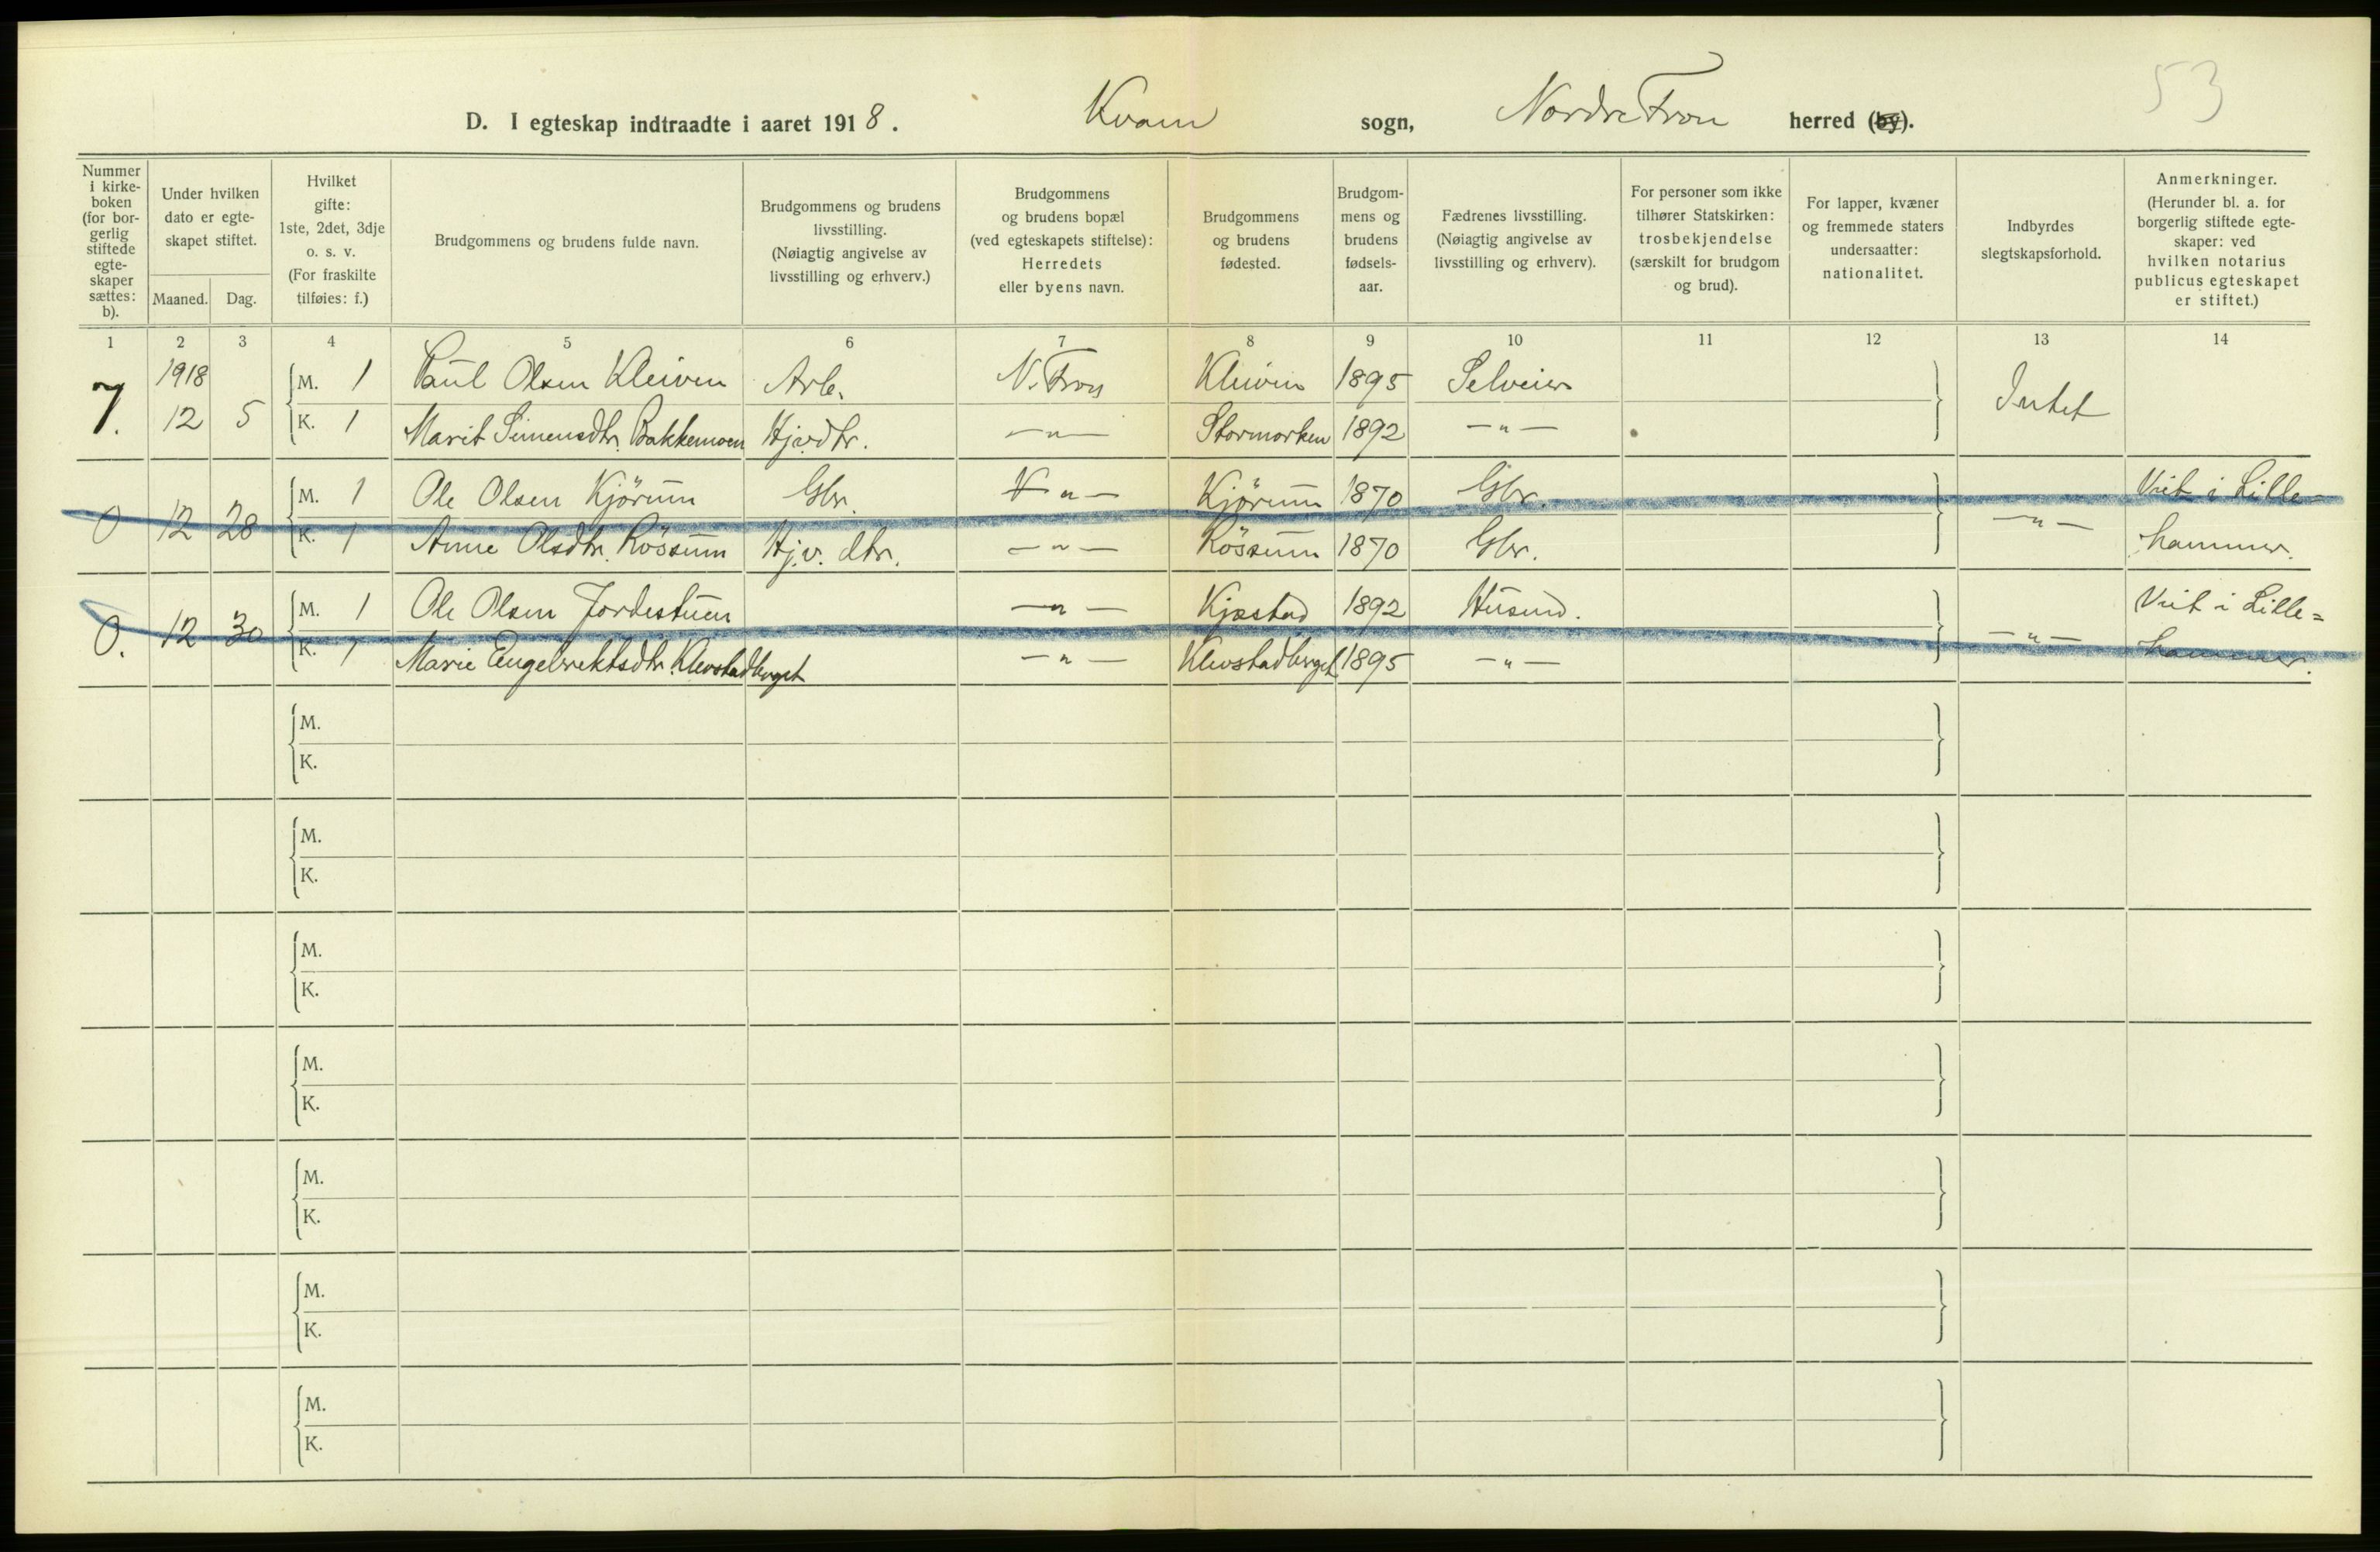 53
D. I egteskap indtraadte i aaret 1918. Kvam sogn, Nordre Fron herred (by).
Nummer i kirkeboken (for borgerlig stiftede egteskaper sættes: b).
Under hvilken dato er egteskapet stiftet.
Maaned. Dag.
Hvilket gifte: 1ste, 2det, 3dje o. s. v. (For fraskilte tilføies: f.)
Brudgommens og brudens fulde navn.
Brudgommens og brudens livsstilling. (Nøiagtig angivelse av livsstilling og erhverv.)
Brudgommens og brudens bopæl (ved egteskapets stiftelse): Herredets eller byens navn.
Brudgommens og brudens fødested.
Brudgommens og brudens fødselsaar.
Fædrenes livsstilling. (Nøiagtig angivelse av livsstilling og erhverv).
For personer som ikke tilhører Statskirken: trosbekjendelse (særskilt for brudgom og brud).
For lapper, kvæner og fremmede staters undersaatter: nationalitet.
Indbyrdes slegtskapsforhold.
Anmerkninger. (Herunder bl. a. for borgerlig stiftede egteskaper: ved hvilken notarius publicus egteskapet er stiftet.)
1 2 3 4 5 6 7 8 9 10 11 12 13 14
1918 M. 1 Paul Olsen Kleiven Arb. N. Fron Kleiven 1895 Selveier
7. 12 5 K. 1 Marit Simensdtr. Bakkemoen Hj.v.dtr. —"— Stormorken 1892 —"— Intet
M. 1 Ole Olsen Kjörum Gbr. —"— Kjörum 1870 Gbr. Viet i Lille-
0 12 28 K. 1 Anne Olsdtr. Rössum Hj.v. dtr. —"— Rössum 1870 Gbr. —"— hammer.
M. 1 Ole Olsen Jordestuen —"— Kjæstad 1892 Husmd. Viet i Lille=
0. 12 30 K. 1 Marie Engebrektsdtr. Klevstadberget —"— Klevstadberget 1895 —"— —"— hammer.
M.
K.
M.
K.
M.
K.
M.
K.
M.
K.
M.
K.
M.
K.